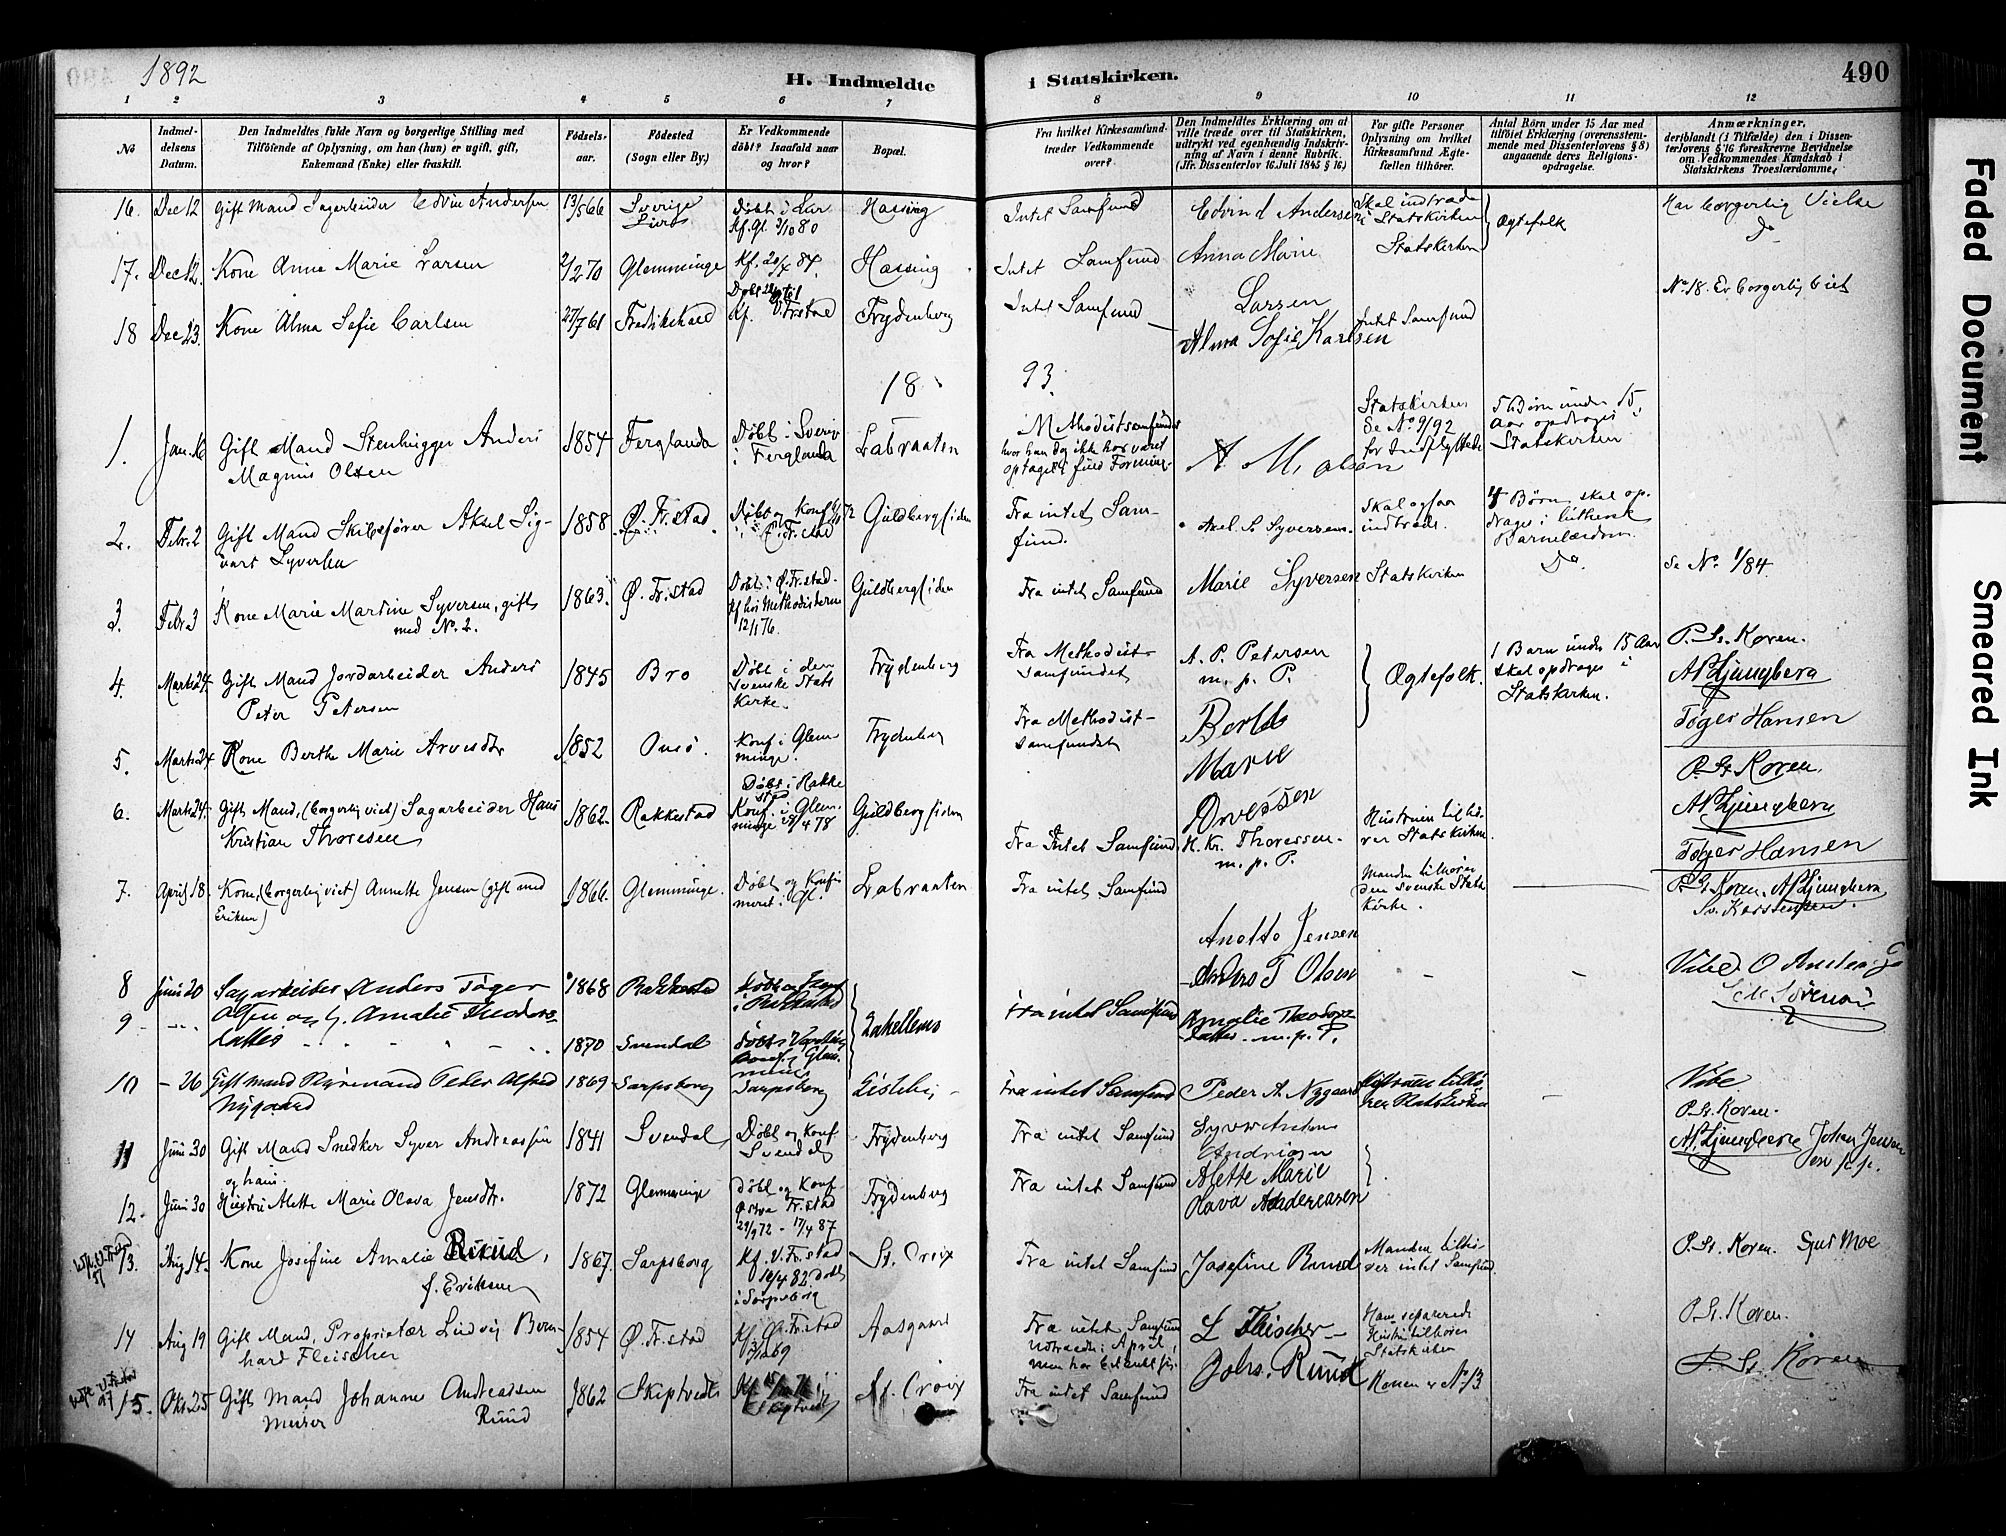 1892
H. Indmeldte i Statskirken.
490
1 2 3 4 5 6 7 8 9 10 11 12
No
Indmeldelsens Datum.
Den Indmeldtes fulde Navn og borgerlige Stilling med Tilföiende af Oplysning, om han (hun) er ugift, gift, Enkemand (Enke) eller fraskilt.
Födselsaar.
Födested (Sogn eller By.)
Er Vedkommende döbt? Isaafald naar og hvor?
Bopæl.
Fra hvilket Kirkesamfund træder Vedkommende over?
Den Indmeldtes Erklæring om at ville træde over til Statskirken, udtrykt ved egenhændig Indskrivning af Navn i denne Rubrik. (Jfr. Dissenterlov 16. Juli 1845 § 16.)
For gifte Personer Oplysning om hvilket Kirkesamfund Ægtefællen tilhörer.
Antal Börn under 15 Aar med tilföiet Erklæring (overensstemmende med Dissenterlovens § 8) angaaende deres Religionsopdragelse.
Anmærkninger, deriblandt (i Tilfælde) den i Dissenterlovens § 16 foreskrevne Bevidnelse om Vedkommendes Kundskab i Statskirkens Troeslærdomme.
16. Dec 12 Gift Mand Sagarbeider Edvin Andersen 13/5 66 Sverige Döbt i Lur Kf. Gl. 3/10 80 Hassing Intet Samfund Edvind Andersen Skal indtræde i Statskirken Ægtefolk Har borgerlig Vielse
17. Dec 12. Kone Anna Marie Larsen 2/2 70 Glemminge Kf. 20/4 84. Hassing Intet Samfund Anna Marie Larsen Statskirken do
18 Dec 23. Kone Alma Sofie Carlsen 27/7 61 Fredrikshald Kf. V. Frstad Frydenberg Intet Samfund Alma Sofie Karlsen Intet Samfund No 18. Er borgerlig viet
18 93.
1. Jan. 16 Gift Mand Stenhugger Anders Magnus Olsen 1854 Ferglanda Döbt i Sverig i Ferglanda Labraaten Methodistsamfundet hvor han dog ikke har været optaget i fuld Forening. A. M. Olsen Statskirken Se No 9/92 for Indflyttede 5 Börn under 15 Aar opdrages i Statskirken
2. Febr. 2 Gift Mand Skibsförer Aksel Sigvart Syversen 1858. Ø. Fr.stad. Döbt og Konf. i Ø. Fr.stad Guldbergsiden Fra intet Samfund. Axel S. Syversen. Skal ogsaa indtræde. 4 Börn skal opdrages i luthersk Barnelærdom.
3. Febr. 3 Kone Marie Martine Syversen, gift med No. 2. 1863. Ø. Fr.stad Döbt i Ø. Fr.stad. Kf hos Methodisterne 12/11 76. Guldbergsiden Fra intet Samfund Marie Syversen Statskirken Do. Se No. 1/84.
4. Marts 24. Gift Mand Jordarbeider Anders Peter Petersen 1845 Bro Döbt i den svenske Stats Kirke. Frydenberg Fra Methodistsamfundet A. P. Petersen m. p. P. Ægtefolk. 1 Barn under 15 Aar skal opdrages i Statskirken. P. St. Koren. A Ljungberg Töger Hansen
5. Marts 24 Kone Berthe Marie Arvesdtr 1852 Onsö. Konf. i Glemminge. Frydenberg Fra Methodistsamfundet Berthe Marie Arvessen P. St. Koren. A Ljungberg Töger Hansen
6. Marts 24. Gift Mand, (borgerlig viet) Sagarbeider Hans Kristian Thoresen 1862. Rakkestad Döbt i Rakkestd Konf. i Glemminge 28/4 78 Guldbergsiden Fra intet Samfund H. Kr. Thoressen. m. p. P. Hustruen tilhörer Statskirken.
7. April 18. Kone, (borgerlig viet) Annette Jensen (gift med Eriksen) 1866. Glemminge. Döbt og Konfirmeret i Gl. Labraaten Fra intet Samfund Anette Jensen Manden tilhörer den svenske Stats Kirke. P. St. Koren. A Ljungberg
8 Juni 20 Sagarbeider Anders Töger Olsen og H. Amalie Theodors- 1868 Rakkestad Döbt og Konf i Rakkestad Fra intet Samfund Anders T Olsen
9 datter 1870 Svendal Amalie Theodorsdatter m. p. P.
10 – 26 Gift mand Peder Alfred Nygaard 1869 Sarpsborg Sarpsborg Lisleby Fra intet Samfund Peder A. Nygaard Hustruen tilhörer Statskirken Vibe
11 Juni 30 Gift Mand Snedker Syver Andreassen og hans 1841 Svendal Döbt og Konf. Svendal Frydenberg Fra intet Samfund Syver Anton Andriasen P. St. Koren. A Ljungberg Johan Jensen
12. Juni 30 Hustru Alette Marie Olava Jensdtr. 1872 Glemminge Döbt og Konf. Östre Fr.stad 29/9 72 – 17/4 87 Frydenberg Fra intet Samfund Alette Marie Olava Andereasen
13. Aug 14. Kone Josefine Amalie Ruud, f. Eriksen 1867. Sarpsborg Kf. V. Fr.stad 16/4 82. Döbt i Sarpsborg St. Croix Fra intet Samfund Josefine Ruud Manden tilhörer intet Samfund. P. St. Koren. Gust Moe
14 Aug 19 Gift Mand, Proprietær Ludvig Bernhard Fleischer 1854 Ø. Fr.stad Kf. Ø. Fr.stad Aasgaard Fra intet Samfund udtraadt i April, L Fleischer Hans separerede Hustru tilhörer Statskirken P. St. Koren.
15. Okt. 25 Gift Mand Johannes Andreassen Ruud Murer 1862 Skiptvedt St. Croix Fra intet Samfund Johs. Ruud Konen er No 13 P. St. Koren
Faded Document
Smeared Ink